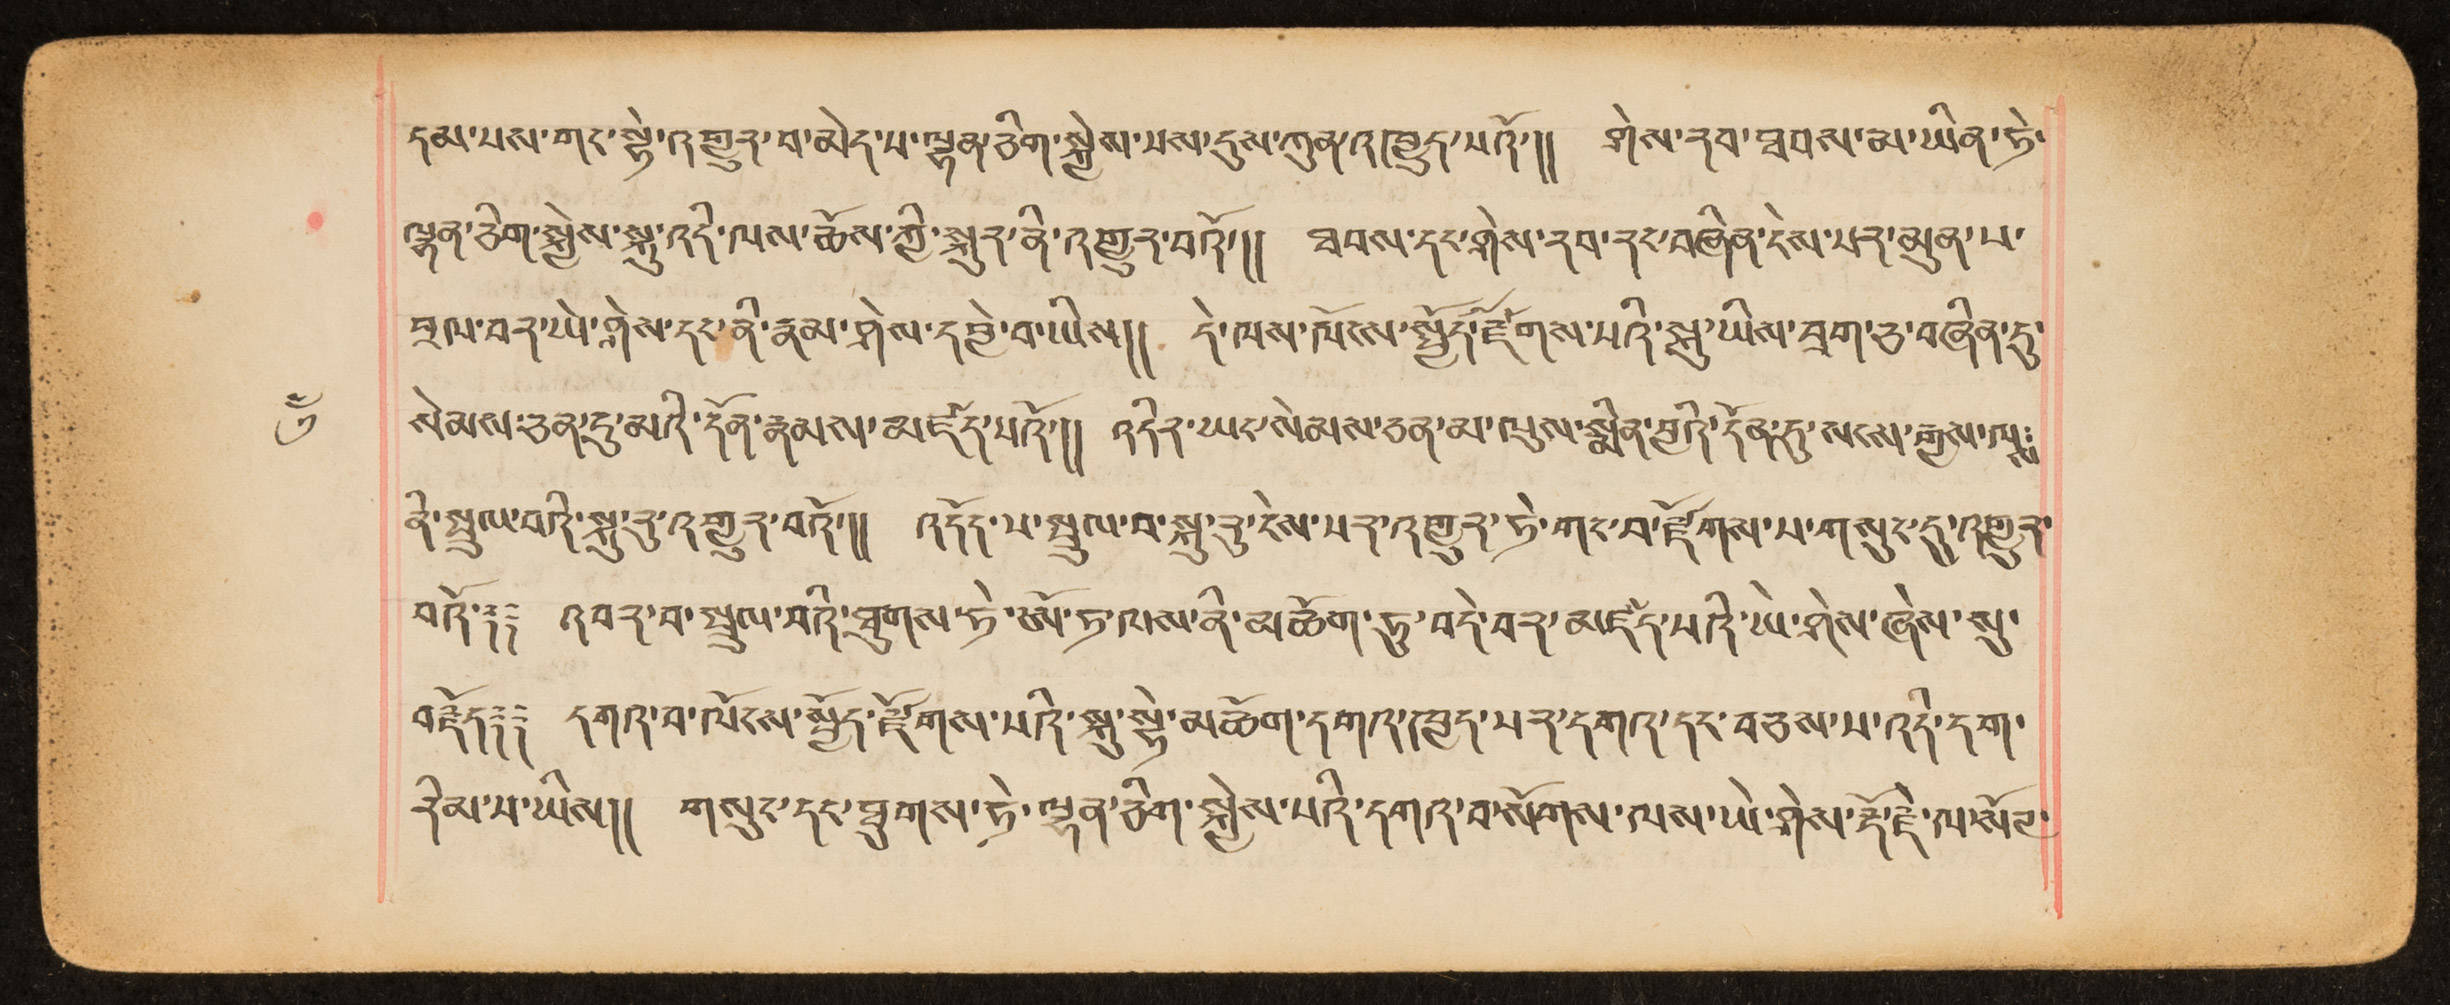 དམ་པས་གང་སྟེ་འགྱུར་བ་མེད་པ་ལྷན་ཅིག་སྐྱེས་པས་དུས་ཀུན་འཁྱུད་པའོ༎ ཤེས་རབ་ཐབས་མ་ཡིན་ཏེ་
ལྷན་ཅིག་སྐྱེས་སྐུ་འདི་ལས་ཆོས་ཀྱི་སྐུར་ནི་འགྱུར་བའོ༎ ཐབས་དང་ཤེས་རབ་རང་བཞིན་ངེས་པར་མུན་པ་
བྲལ་བར་ཡེ་ཤེས་དང་ནི་རྣམ་ཤེས་དབྱེ་བ་ཡིས༎ དེ་ལས་ལོངས་སྤྱོད་རྫོགས་པའི་སྐུ་ཡིས་བྲག་ཅ་བཞིན་དུ་
སེམས་ཅན་དུ་མའི་དོན་རྣམས་མཛད་པའོ༎ འདིར་ཡང་སེམས་ཅན་མ་ལུས་སྨིན་བྱའི་དོན་དུ་སངས་རྒྱས་
ནི་སྤྲུལ་བའི་སྐུ་རུ་འགྱུར་བའོ༎ འདོད་པ་སྤྲུལ་བ་སྐུ་རུ་ངེས་པར་འགྱུར་ཏེ་གང་བ་རྫོགས་པ་གསུང་དུ་འགྱུར་
བའོ༎ འབར་བ་སྤྲུལ་བའི་ཐུགས་ཏེ་ཨོ་ཏ་ལས་ནི་མཆོག་ཏུ་བདེ་བར་མཛད་པའི་ཡེ་ཤེས་ཞེས་སུ་
བརྗོད༎ དགའ་བ་ལོངས་སྤྱོད་རྫོགས་པའི་སྐུ་སྟེ་མཆོག་དགའ་ཁྱད་པར་དགའ་དང་བཅས་པ་འདི་དག་
རིམ་པ་ཡིས༎ གསུང་དང་ཐུགས་ཏེ་ལྷན་ཅིག་སྐྱེས་པའི་དགའ་བ་སོགས་ལས་ཡེ་ཤེས་རྡོ་རྗེ་ལ་སོར་